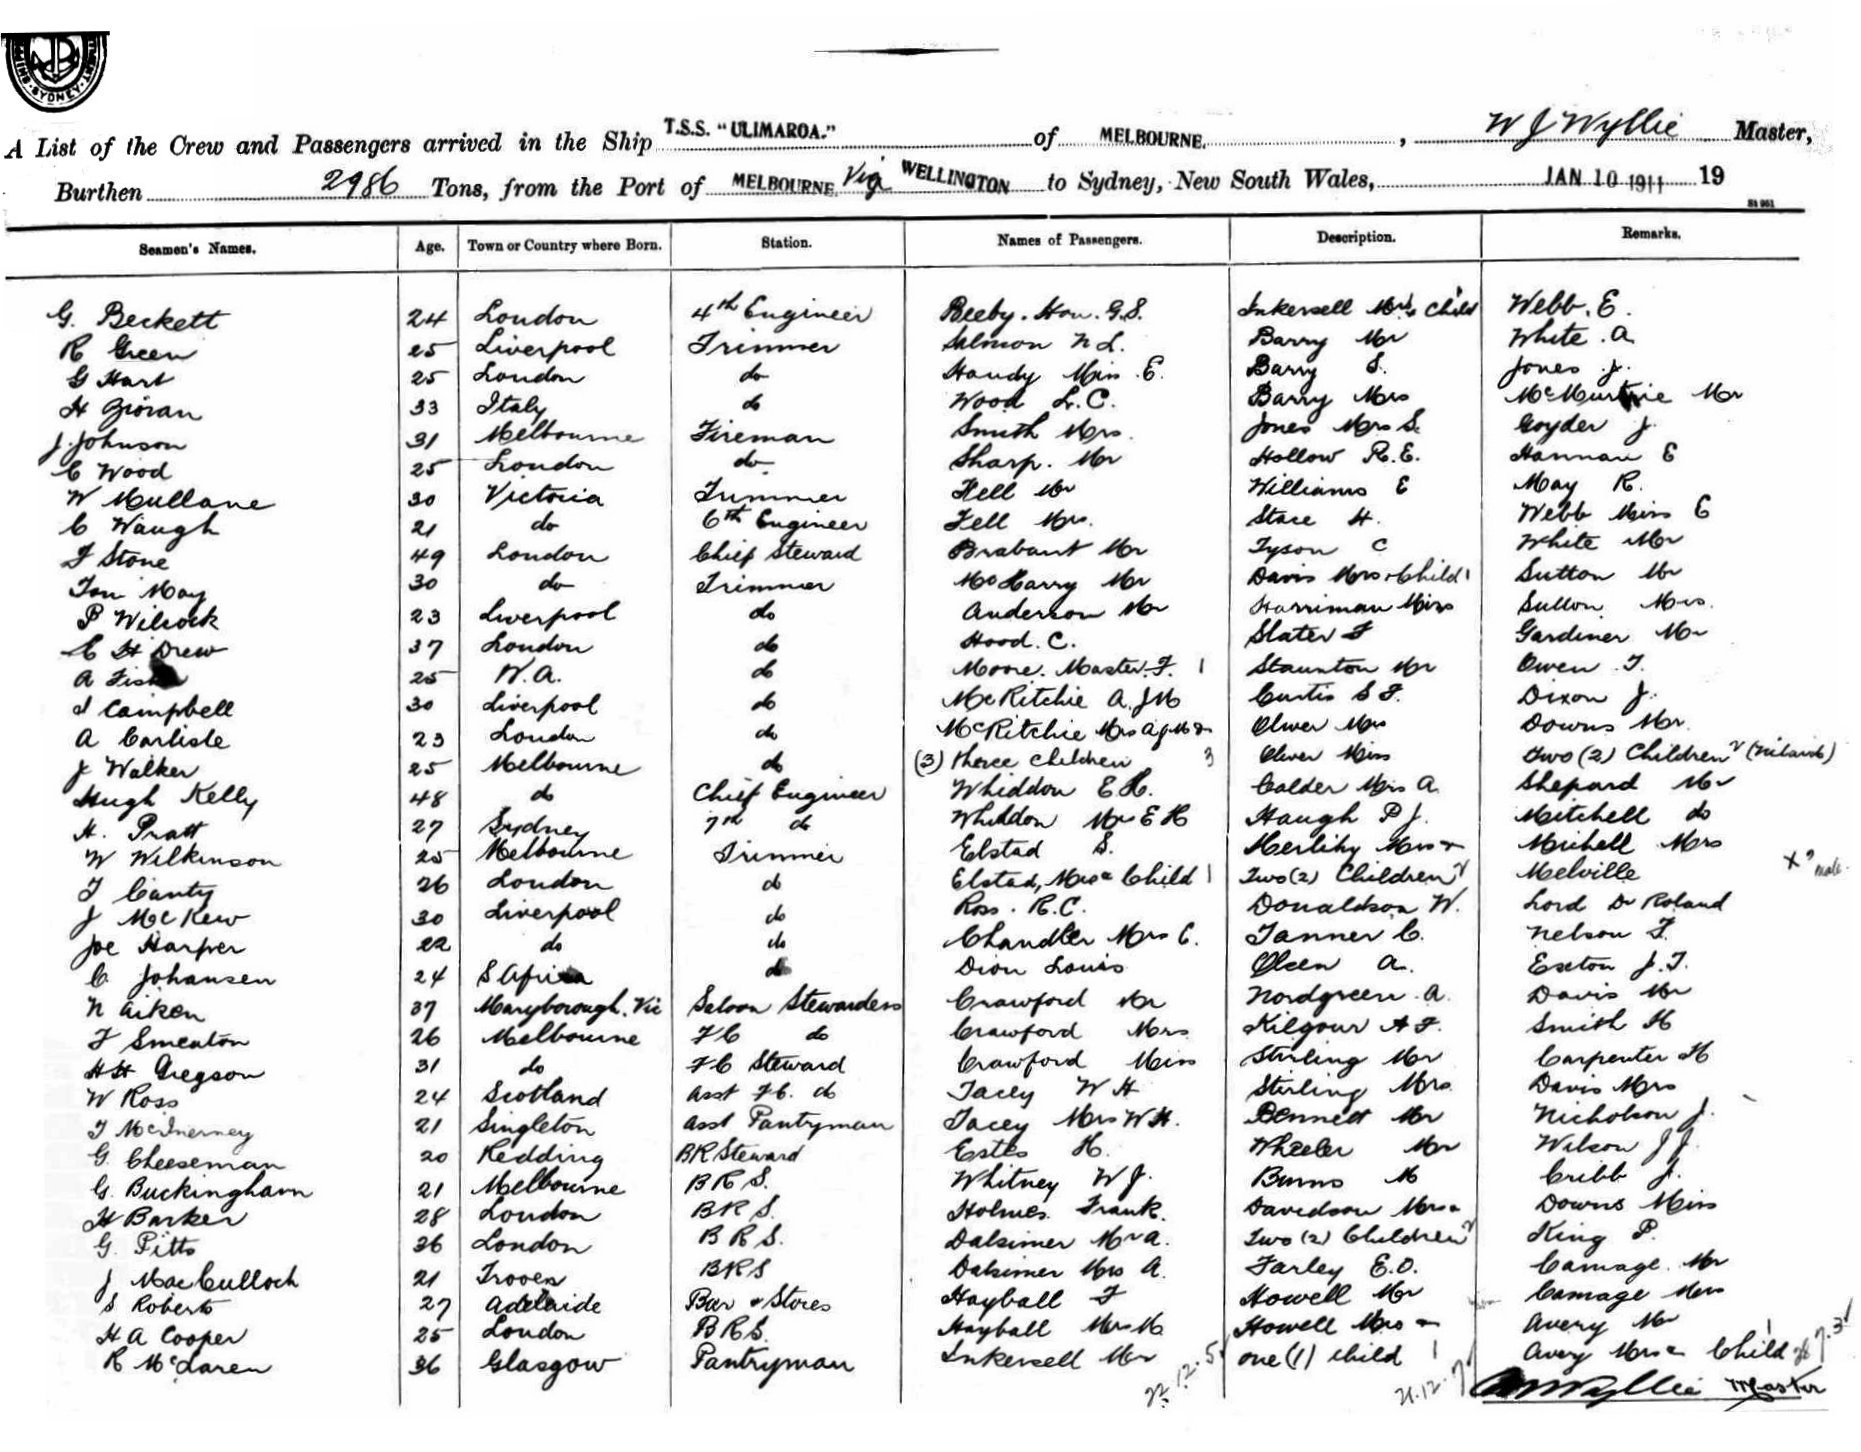 SYDNEY
A List of the Crew and Passengers arrived in the Ship T.S.S. "ULIMAROA." of MELBOURNE, W J Wyllie Master,
Burthen 2986 Tons, from the Port of MELBOURNE Via WELLINGTON to Sydney, New South Wales, JAN 10 1911 19
Seamen's Names. Age. Town or Country where Born. Station. Names of Passengers. Description. Remarks.
G. Beckett 24 London 4th Engineer Beeby. Hon. G.S. Inkersell Mrs Child Webb. E.
R Green 25 Liverpool Trimmer Salmon N L. Barry Mr White . A
G Hart 25 London do Handy Miss E. Barry S. Jones J.
H Gioran 33 Italy do Wood L. C. Barry Mrs McMurtrie Mr
J. Johnson 31 Melbourne Fireman Smith Mrs. Jones Mrs S. Goyder J
C Wood 25 London do Sharp. Mr Hollow R. E. Hannan E
W Mullane 30 Victoria Trimmer Fell Mr Williams E May R.
C Waugh 21 do 6th Engineer Fell Mrs. Stace H. Webb Miss E
F Stone 49 London Chief Steward Brabant Mr Tyson C White Mr
Tom May 30 do Trimmer McHarry Mr Davis Mrs & Child 1 Sutton Mr
P Wilcock 23 Liverpool do Anderson Mr Harriman Miss Sutton Mrs.
C H Drew 37 London do Hood. C. Slater F Gardiner Mr
A 25 W.A. do Moore. Master. F. 1 Staunton Mr Owen T.
J Campbell 30 Liverpool do McRitchie A. J M Curtis S F. Dixon J.
A Carlisle 23 London do McRitchie Mrs A J M & Oliver Mrs Downs Mr.
J Walker 25 Melbourne do (3) three children 3 Oliver Miss Two (2) Children 2
Hugh Kelly 48 do Chief Engineer Whiddon E. H. Calder Mrs A. Shepard Mr
H. Pratt 27 Sydney 7th do Whiddon Mrs E H Haugh P J. Mitchell do
W Wilkinson 25 Melbourne Trimmer Elstad S. Herlihy Mrs & Michell Mrs
T Canty 26 London do Elstad, Mrs & Child 1 Two (2) Children 2 Melville x male.
J McKew 30 Liverpool do Ross. R. C. Donaldson W. Lord Dr Roland
Joe Harper 22 do do Chandler Mrs C. Tanner C. Nelson F.
C. Johansen 24 S Africa do Dion Louis Olsen A. Exton J. T.
N Aiken 37 Maryborough. Vic Saloon Stewardess Crawford Mr Nordgreen A. Davis Mr
F Smeaton 26 Melbourne FC do Crawford Mrs Kilgour A F. Smith H
H H Gregson 31 do FC Steward Crawford Miss Stirling Mr Carpenter H
W Ross 24 Scotland Asst FC. do Tacey W H Stirling Mrs. Davis Mrs
T McInerney 21 Singleton Asst Pantryman Tacey Mrs W H. Bennett Mr Nicholson J.
G. Cheeseman 20 Redding BR Steward Estes H. Wheeler Mr Wilson J J.
G. Buckingham 21 Melbourne B R S. Whitney W J. Burns M Cribb J.
H Barker 28 London B R S. Holmes. Frank. Davidson Mrs & Downs Miss
G. Pitts 36 London B R S. Dalsimer Mr A. Two (2) Children 2 King P.
J MacCulloch 21 BRS Dalsimer Mrs A. Farley E.O. Camage. Mr
S Roberts 27 Adelaide Bar & Stores Hayball F Howell Mr Camage Mrs
H A Cooper 25 London B R S. Hayball Mrs M Howell Mrs & Avery Mr
R McLaren 36 Glasgow Pantryman Inkersell Mr one (1) child 1 Avery Mrs & Child 1
22.12.5 21.12.7 Wyllie Master